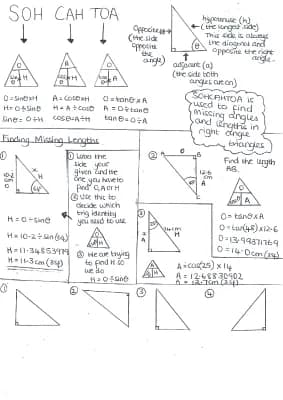 SOH CAH TOA
Opposite (o)
(the side
opposite
the
angle)
hypotenuse (h)
(the longest side)
This side is always
the diagonal and
opposite the right
angle.
θ
adjacent (a)
(the side both
angles are on)
O
H
A
H
O
A
O=sinθ×H
A=cosθ×H
O=tanθ×A
H=O÷sinθ
H=A÷cosθ
A=O÷tanθ
sinθ=O÷H
cosθ=A÷H
tanθ=O÷A
SOHCAHTOA is
used to find
missing angles
and lengths in
right angle
triangles
Finding Missing Lengths
①
10.2
cm
O
x
H
64°
H=O÷sinθ
H=10.2÷sin(64)
H=11.34853979
H=11.3cm(3sf)
① Label the
side your
given and the
one you have to
find O, A or H
② Use this to
decide which
trig identity
you need to use
O
H
③ We are trying
to find H so
we do
H=O÷sinθ
②
B
O
C
12.6
cm
A
48°
A
Find the length
AB.
O
A
O=tanθ×A
O=tan(48)×12.6
O=13.99371769
O=14.0cm(3sf)
③
25°
14cm
H
x
A
A
H
A=cos(25)×14
A=12.68830902
A=12.7cm(3sf)
①
②
③
④